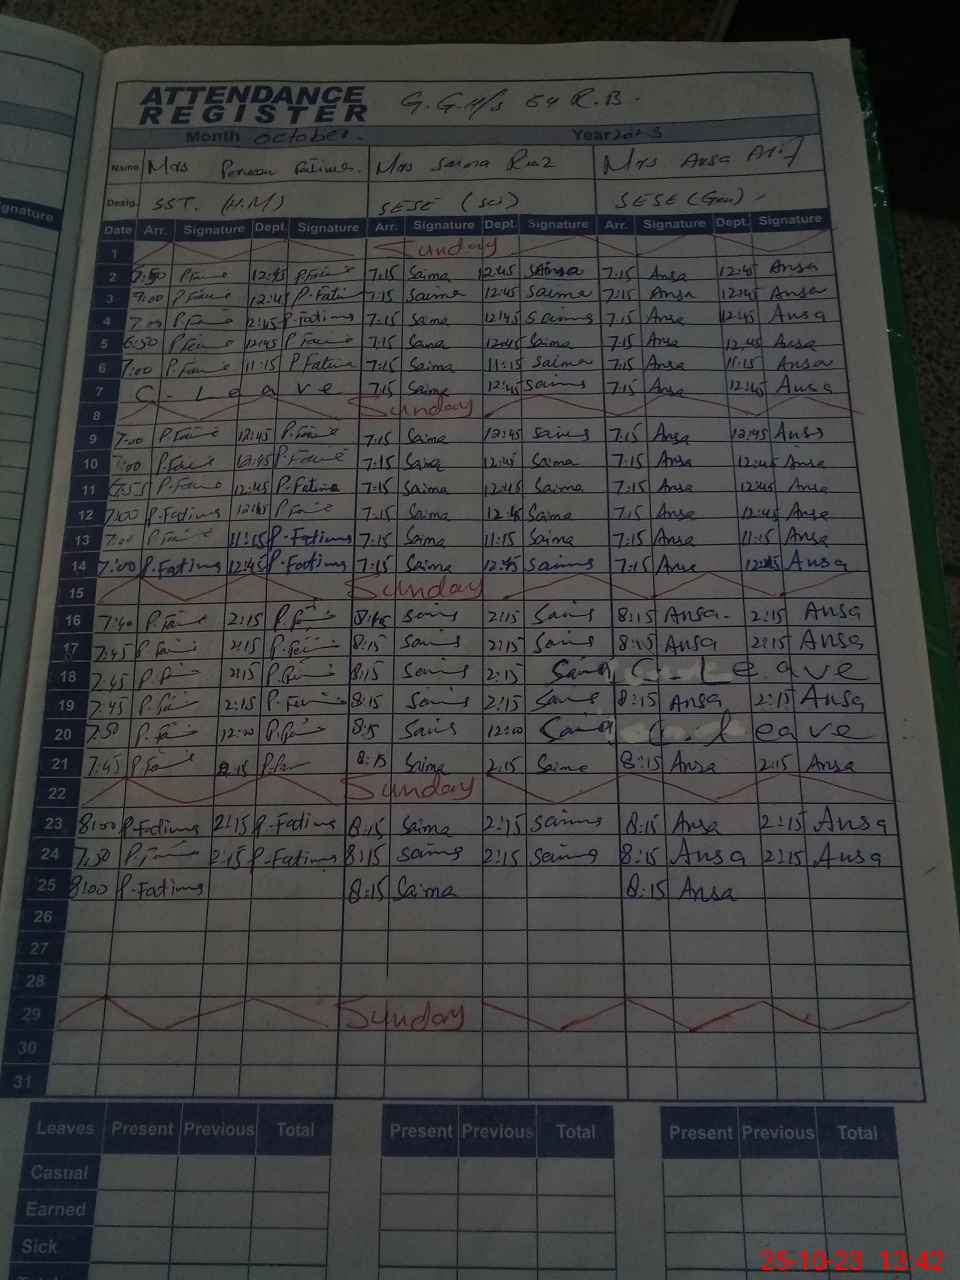 ATTENDANCE
REGISTER
G.G.H/S 64 R.B.
Month October. Year 2023
Name Mrs Fatima. Mrs Saima Riaz Mrs Ansa Arif
Desig. SST. (H.M) SESE (Sci) SESE (Gen)
Date Arr. Signature Dept. Signature Arr. Signature Dept. Signature Arr. Signature Dept. Signature
1 Sunday
2 7:50 P.Fatima 12:45 P.Fatima 7:15 Saima 12:45 Saima 7:15 Ansa 12:45 Ansa
3 7:00 P.Fatima 12:45 P-Fatima 7:15 Saima 12:45 Saima 7:15 Ansa 12:45 Ansa
4 7:00 P.Fatima 2:45 P-Fatima 7:15 Saima 12:45 Saima 7:15 Ansa 12:45 Ansa
5 6:50 P.Fatima 12:45 P.Fatima 7:15 Saima 12:45 Saima 7:15 Ansa 12:45 Ansa
6 7:00 P.Fatima 11:15 P.Fatima 7:15 Saima 11:15 Saima 7:15 Ansa 11:15 Ansa
7 C-Leave 7:15 Saima 12:45 Saima 7:15 Ansa 12:45 Ansa
8 Sunday
9 7:00 P.Fatima 12:45 P.Fatima 7:15 Saima 12:45 Saima 7:15 Ansa 12:45 Ansa
10 7:00 P.Fatima 12:45 P.Fatima 7:15 Saima 12:45 Saima 7:15 Ansa 12:45 Ansa
11 P.Fatima 12:45 P-Fatima 7:15 Saima 12:45 Saima 7:15 Ansa 12:45 Ansa
12 7:00 P-Fatima 12:45 P.Fatima 7:15 Saima 12:45 Saima 7:15 Ansa 12:45 Ansa
13 7:00 P.Fatima 11:15 P-Fatima 7:15 Saima 11:15 Saima 7:15 Ansa 11:15 Ansa
14 7:00 P-Fatima 12:45 P-Fatima 7:15 Saima 12:45 Saima 7:15 Ansa 12:45 Ansa
15 Sunday
16 7:40 P.Fatima 2:15 P.Fatima 8:15 Saima 2:15 Saima 8:15 Ansa 2:15 Ansa
17 7:45 P.Fatima 2:15 P.Fatima 8:15 Saima 2:15 Saima 8:15 Ansa 2:15 Ansa
18 7:45 P.Fatima 2:15 P.Fatima 8:15 Saima 2:15 Saima C.Leave
19 7:45 P.Fatima 2:15 P.Fatima 8:15 Saima 2:15 Saima 8:15 Ansa 2:15 Ansa
20 7:50 P.Fatima 12:00 P.Fatima 8:15 Saima 12:00 Saima C.Leave
21 7:45 P.Fatima 2:15 P.Fatima 8:15 Saima 2:15 Saima 8:15 Ansa 2:15 Ansa
22 Sunday
23 8:00 P-Fatima 2:15 P-Fatima 8:15 Saima 2:15 Saima 8:15 Ansa 2:15 Ansa
24 7:50 P.Fatima 2:15 P-Fatima 8:15 Saima 2:15 Saima 8:15 Ansa 2:15 Ansa
25 8:00 P-Fatima 8:15 Saima 8:15 Ansa
26
27
28
29 Sunday
30
31
Leaves Present Previous Total Present Previous Total Present Previous Total
Casual
Earned
Sick
gnature
25-10-23 13:42